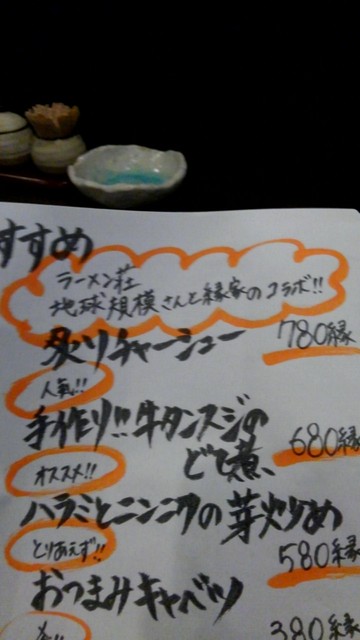 すすめ
ラーメン荘
地球規模さんと縁家のコラボ!!
炙りチャーシュー 780縁
人気!!
手作り!!牛タンスジの
どて煮 680縁
オススメ!!
ハラミとニンニクの芽炒め
とりあえず!! 580縁
おつまみキャベツ
380縁